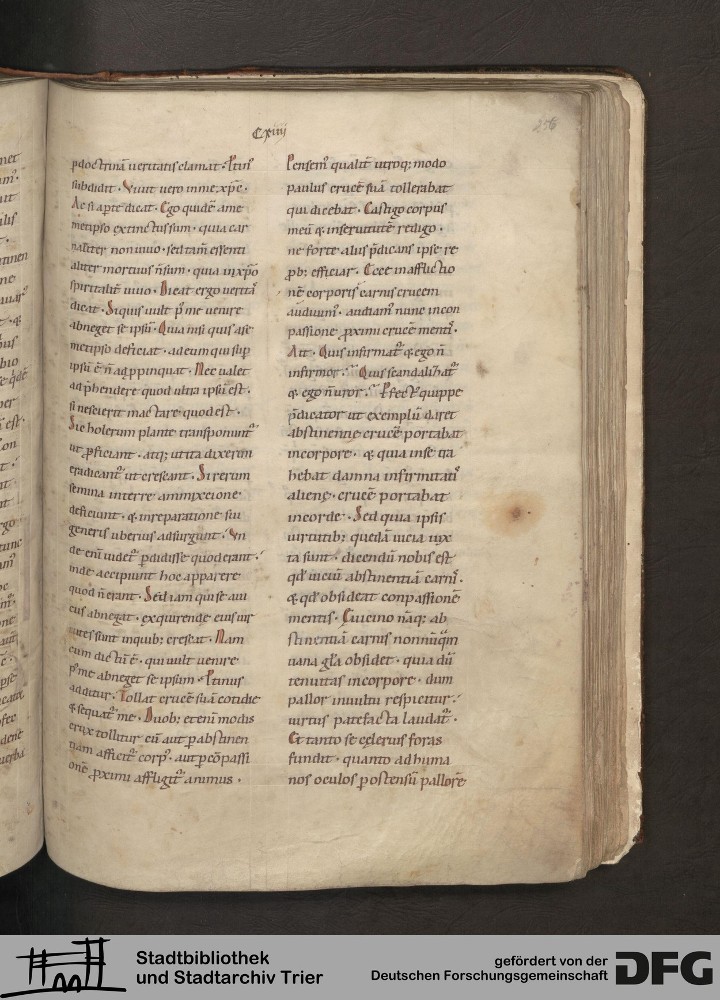 Cxiiii
256
pdoctrinā ueritatis clamat. Ptin⁹
subdidit. Viuit uero in me xp̄c.
Ac si apte dicat. Ego quidē a me
metipso extinctus sum. quia car
naliter non uiuo. sed tam̄ essenti
aliter mortuus ñ sum. quia in xp̄o
spiritalit̄ uiuo. Dicat ergo uerita᷒
dicat. Siquis uult p᷒ me uenire
abneget se ipsū. Quia nisi quis a se
metipso deficiat. ad eum qui sup
ipsū ē ñ adppinquat. Nec ualet
adp̄hendere quod ultra ipsū est.
si nescierit mactare quod est.
Sic holerum plante transponunt᷒
ut pficiant. atq; ut ita dixerim
eradicant᷒ ut crescant. Si rerum
semina in terre ammixcione
deficiunt. & in reparatione sui
generis uberius adsurgunt. Vn
de eni᷒ uidet᷒ pdidisse quod erant.
inde accipiunt hoc apparere
quod ñ erant. Sed iam qui se aui
ciis abnegat. exquirende ei uir
tutes sunt in quib; crescat. Nam
cum dictū ē. qui uult uenire
p᷒ me abneget se ipsum. Ptinus
additur. Tollat crucē suā cotidie
& sequat᷒ me. Duob; etenī modis
crux tollitur cū aut p abstinen
tiam afficit᷒ corp⁹. aut p cōpassi
onē pximi affligit᷒ animus.
Pensem⁹ qualit̄ utroq; modo
paulus crucē suā tollerabat
qui dicebat. Castigo corpus
meū & in seruitutē redigo.
ne forte aliis p̄dicans ipse re
pb; efficiar. Ecce in afflictio
nē corporis carnis crucem
audiuim⁹. audiam⁹ nunc in con
passione pximi crucē menti᷒.
Ait. Quis infirmat᷒ & ego ñ
infirmor. Quis scandalizat᷒
& ego ñ uror. Pfect⁹ quippe
p̄dicator ut exemplū daret
abstinentie crucē portabat
in corpore. & quia in se tra
hebat damna infirmitati᷒
aliene. crucē portabat
in corde. Sed quia ipsis
uirtutib; quedā uicia iux
ta sunt. dicendū nobis est
qd̄ uiciū abstinentiā carni᷒.
& qd̄ obsidet conpassionē
mentis. E uicino nāq; ab
stinentiā carnis nonnūqm̄
uana gl̄a obsidet. quia dū
tenuitas in corpore. dum
pallor in uultu respicitur.
uirtus patefacta laudat᷒.
Et tanto se celerius foras
fundit. quanto ad huma
nos oculos p ostensū pallorē
Stadtbibliothek
und Stadtarchiv Trier
gefördert von der
Deutschen Forschungsgemeinschaft
DFG